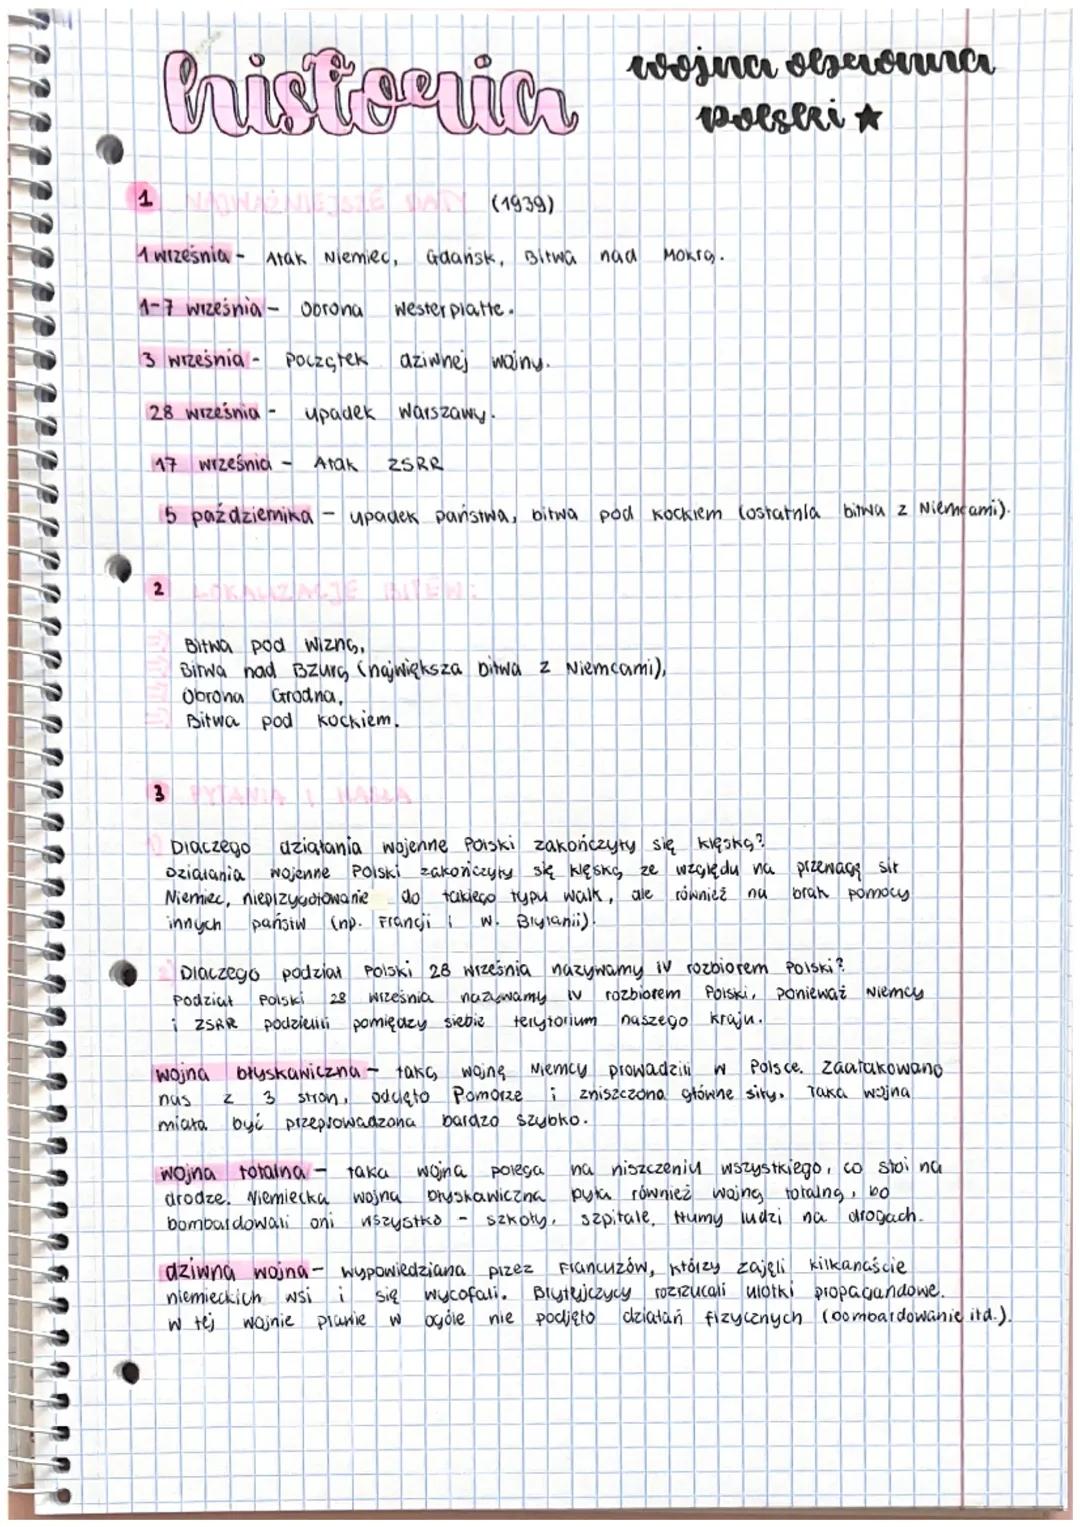 historia
wojna obronna
polski ★
1 NAJWAŻNIEJSZE DATY (1939)
1 września - Atak Niemiec, Gdańsk, Bitwa nad Mokrą.
1-7 września - Obrona Westerplatte.
3 września - Początek dziwnej wojny.
28 września - upadek Warszawy.
17 września - Atak ZSRR
5 października - upadek państwa, bitwa pod Kockiem (ostatnia bitwa z Niemcami).
2 LOKALIZACJE BITEW:
Bitwa pod Wizną,
Bitwa nad Bzurą (największa bitwa z Niemcami),
Obrona Grodna,
Bitwa pod Kockiem.
3 PYTANIA I HASŁA
1) Dlaczego działania wojenne Polski zakończyły się klęską?
Działania wojenne Polski zakończyły się klęską ze względu na przewagę sił
Niemiec, nieprzygotowanie do takiego typu walk, ale również na brak pomocy
innych państw (np. Francji i W. Brytanii).
2) Dlaczego podział Polski 28 września nazywamy IV rozbiorem Polski?
Podział Polski 28 września nazywamy IV rozbiorem Polski, ponieważ Niemcy
i ZSRR podzielili pomiędzy siebie terytorium naszego kraju.
wojna błyskawiczna - taką wojnę Niemcy prowadzili w Polsce. Zaatakowano
nas z 3 stron, odcięto Pomorze i zniszczono główne siły. Taka wojna
miała być przeprowadzona bardzo szybko.
wojna totalna - taka wojna polega na niszczeniu wszystkiego, co stoi na
drodze. Niemiecka wojna błyskawiczna była również wojną totalną, bo
bombardowali oni wszystko - szkoły, szpitale, tłumy ludzi na drogach.
dziwna wojna - wypowiedziana przez Francuzów, którzy zajęli kilkanaście
niemieckich wsi i się wycofali. Brytyjczycy rozrzucali ulotki propagandowe.
w tej wojnie prawie w ogóle nie podjęto działań fizycznych (bombardowanie itd.).